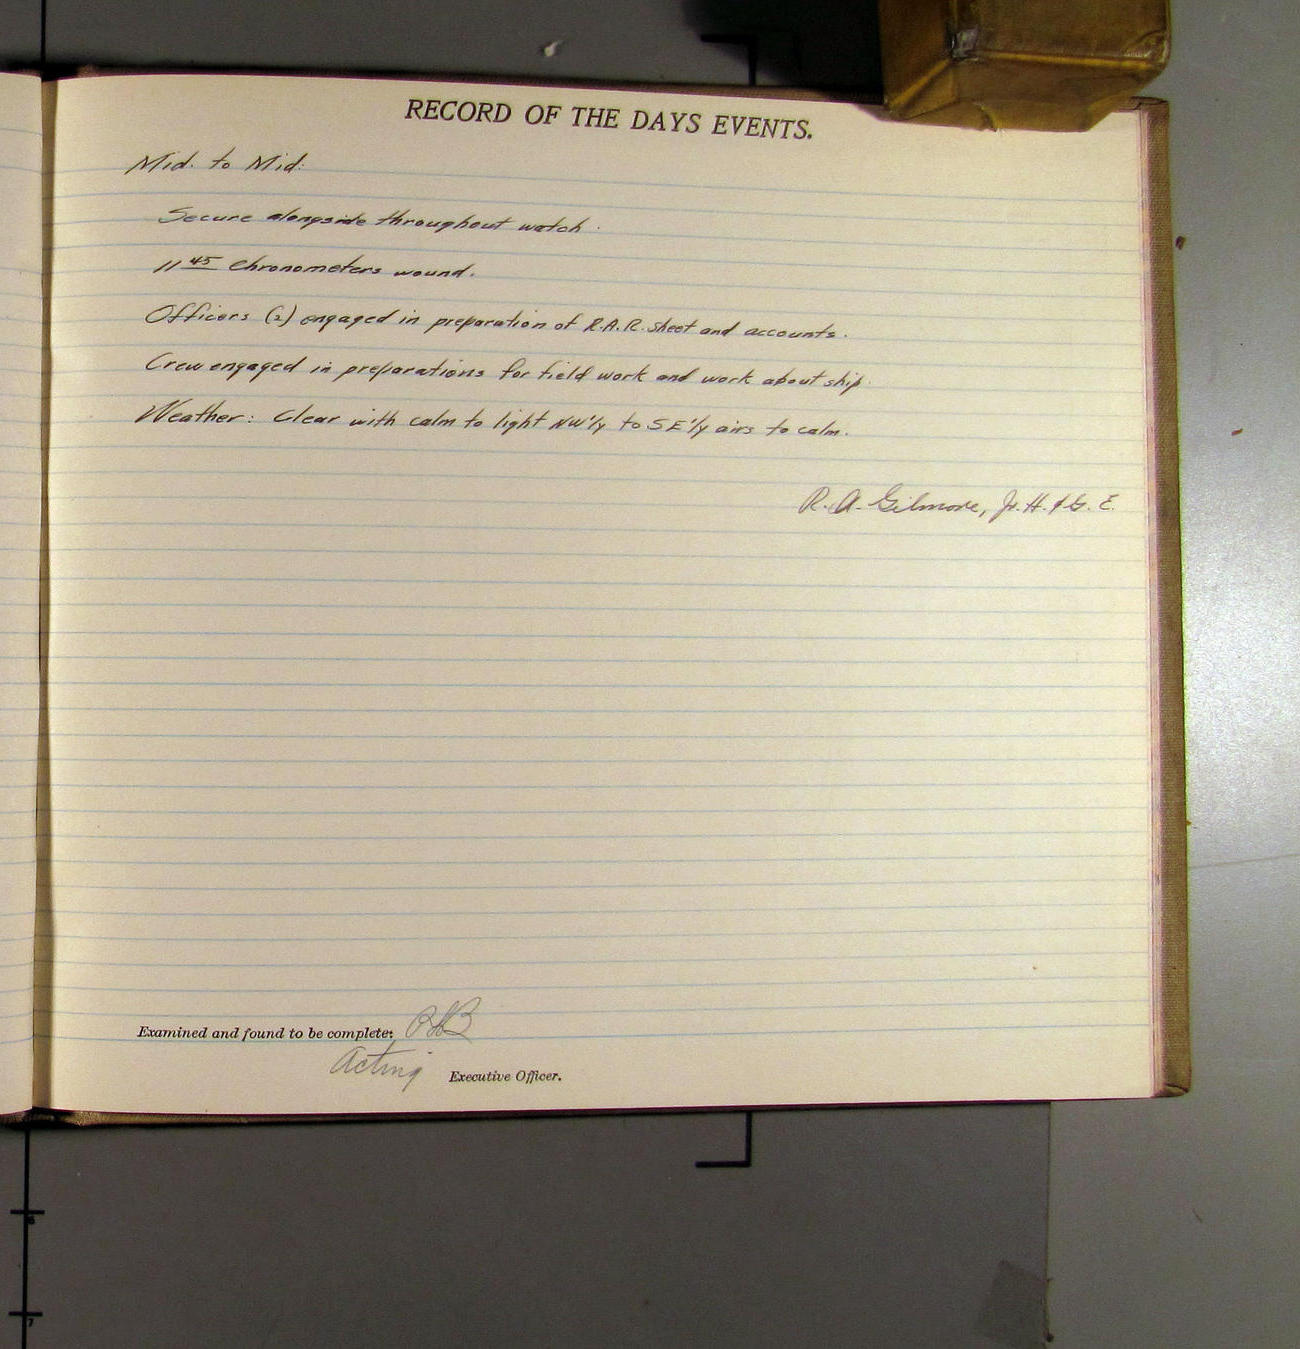 RECORD OF THE DAYS EVENTS.
Mid. to Mid:
Secure alongside throughout watch.
11 45 Chronometers wound.
Officers (2) engaged in preparation of R.A.R. sheet and accounts.
Crew engaged in preparations for field work and work about ship.
Weather: Clear with calm to light NW'ly to SE'ly airs to calm.
R. A. Gilmore, Jr. H. & G. E.
Examined and found to be complete:
Acting Executive Officer.
6
7